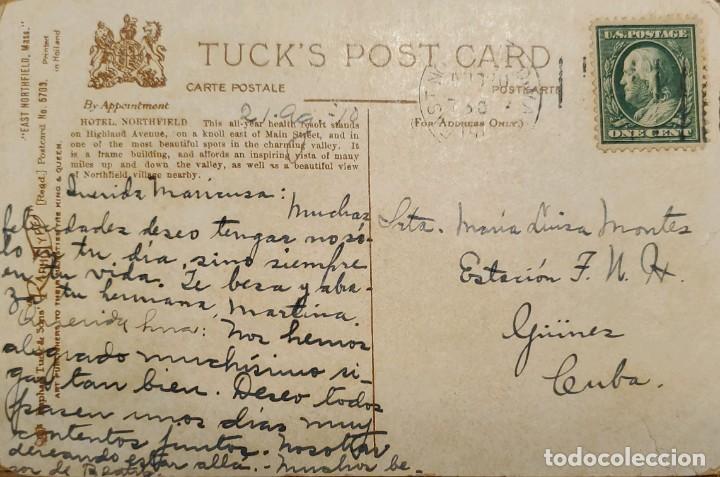 TUCK'S POST CARD
CARTE POSTALE
POSTKARTE
By Appointment
(For Address Only.)
HOTEL NORTHFIELD This all-year health resort stands
on Highland Avenue, on a knoll east of Main Street, and in
one of the most beautiful spots in the charming valley. It
is a frame building, and affords an inspiring vista of many
miles up and down the valley, as well as a beautiful view
of Northfield village nearby.
"EAST NORTHFIELD, Mass."
Printed
in Holland
[Regd.] Postcard No. 5709.
Raphael Tuck & Sons'
ART PUBLISHERS TO THEIR MAJESTIES THE KING & QUEEN.
U.S. POSTAGE
ONE CENT
Querida Maricusa:
Muchas
felicidades deseo tengas no só-
lo en tu día, sino siempre
en tu vida. Te besa y abra-
za tu hermana, Martina.
Querida hna: Nos hemos
alegrado muchísimo si-
gas tan bien. Deseo todos
pasen unos días muy
contentos juntos. Nosotras
deseando estar allá. - Muchos be-
sos de
Srta. María Luisa Montes
Estación F. N. H.
Güines
Cuba.